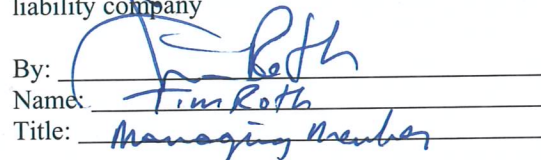 liability company
By: Tim Roth
Name: Tim Roth
Title: Managing Member